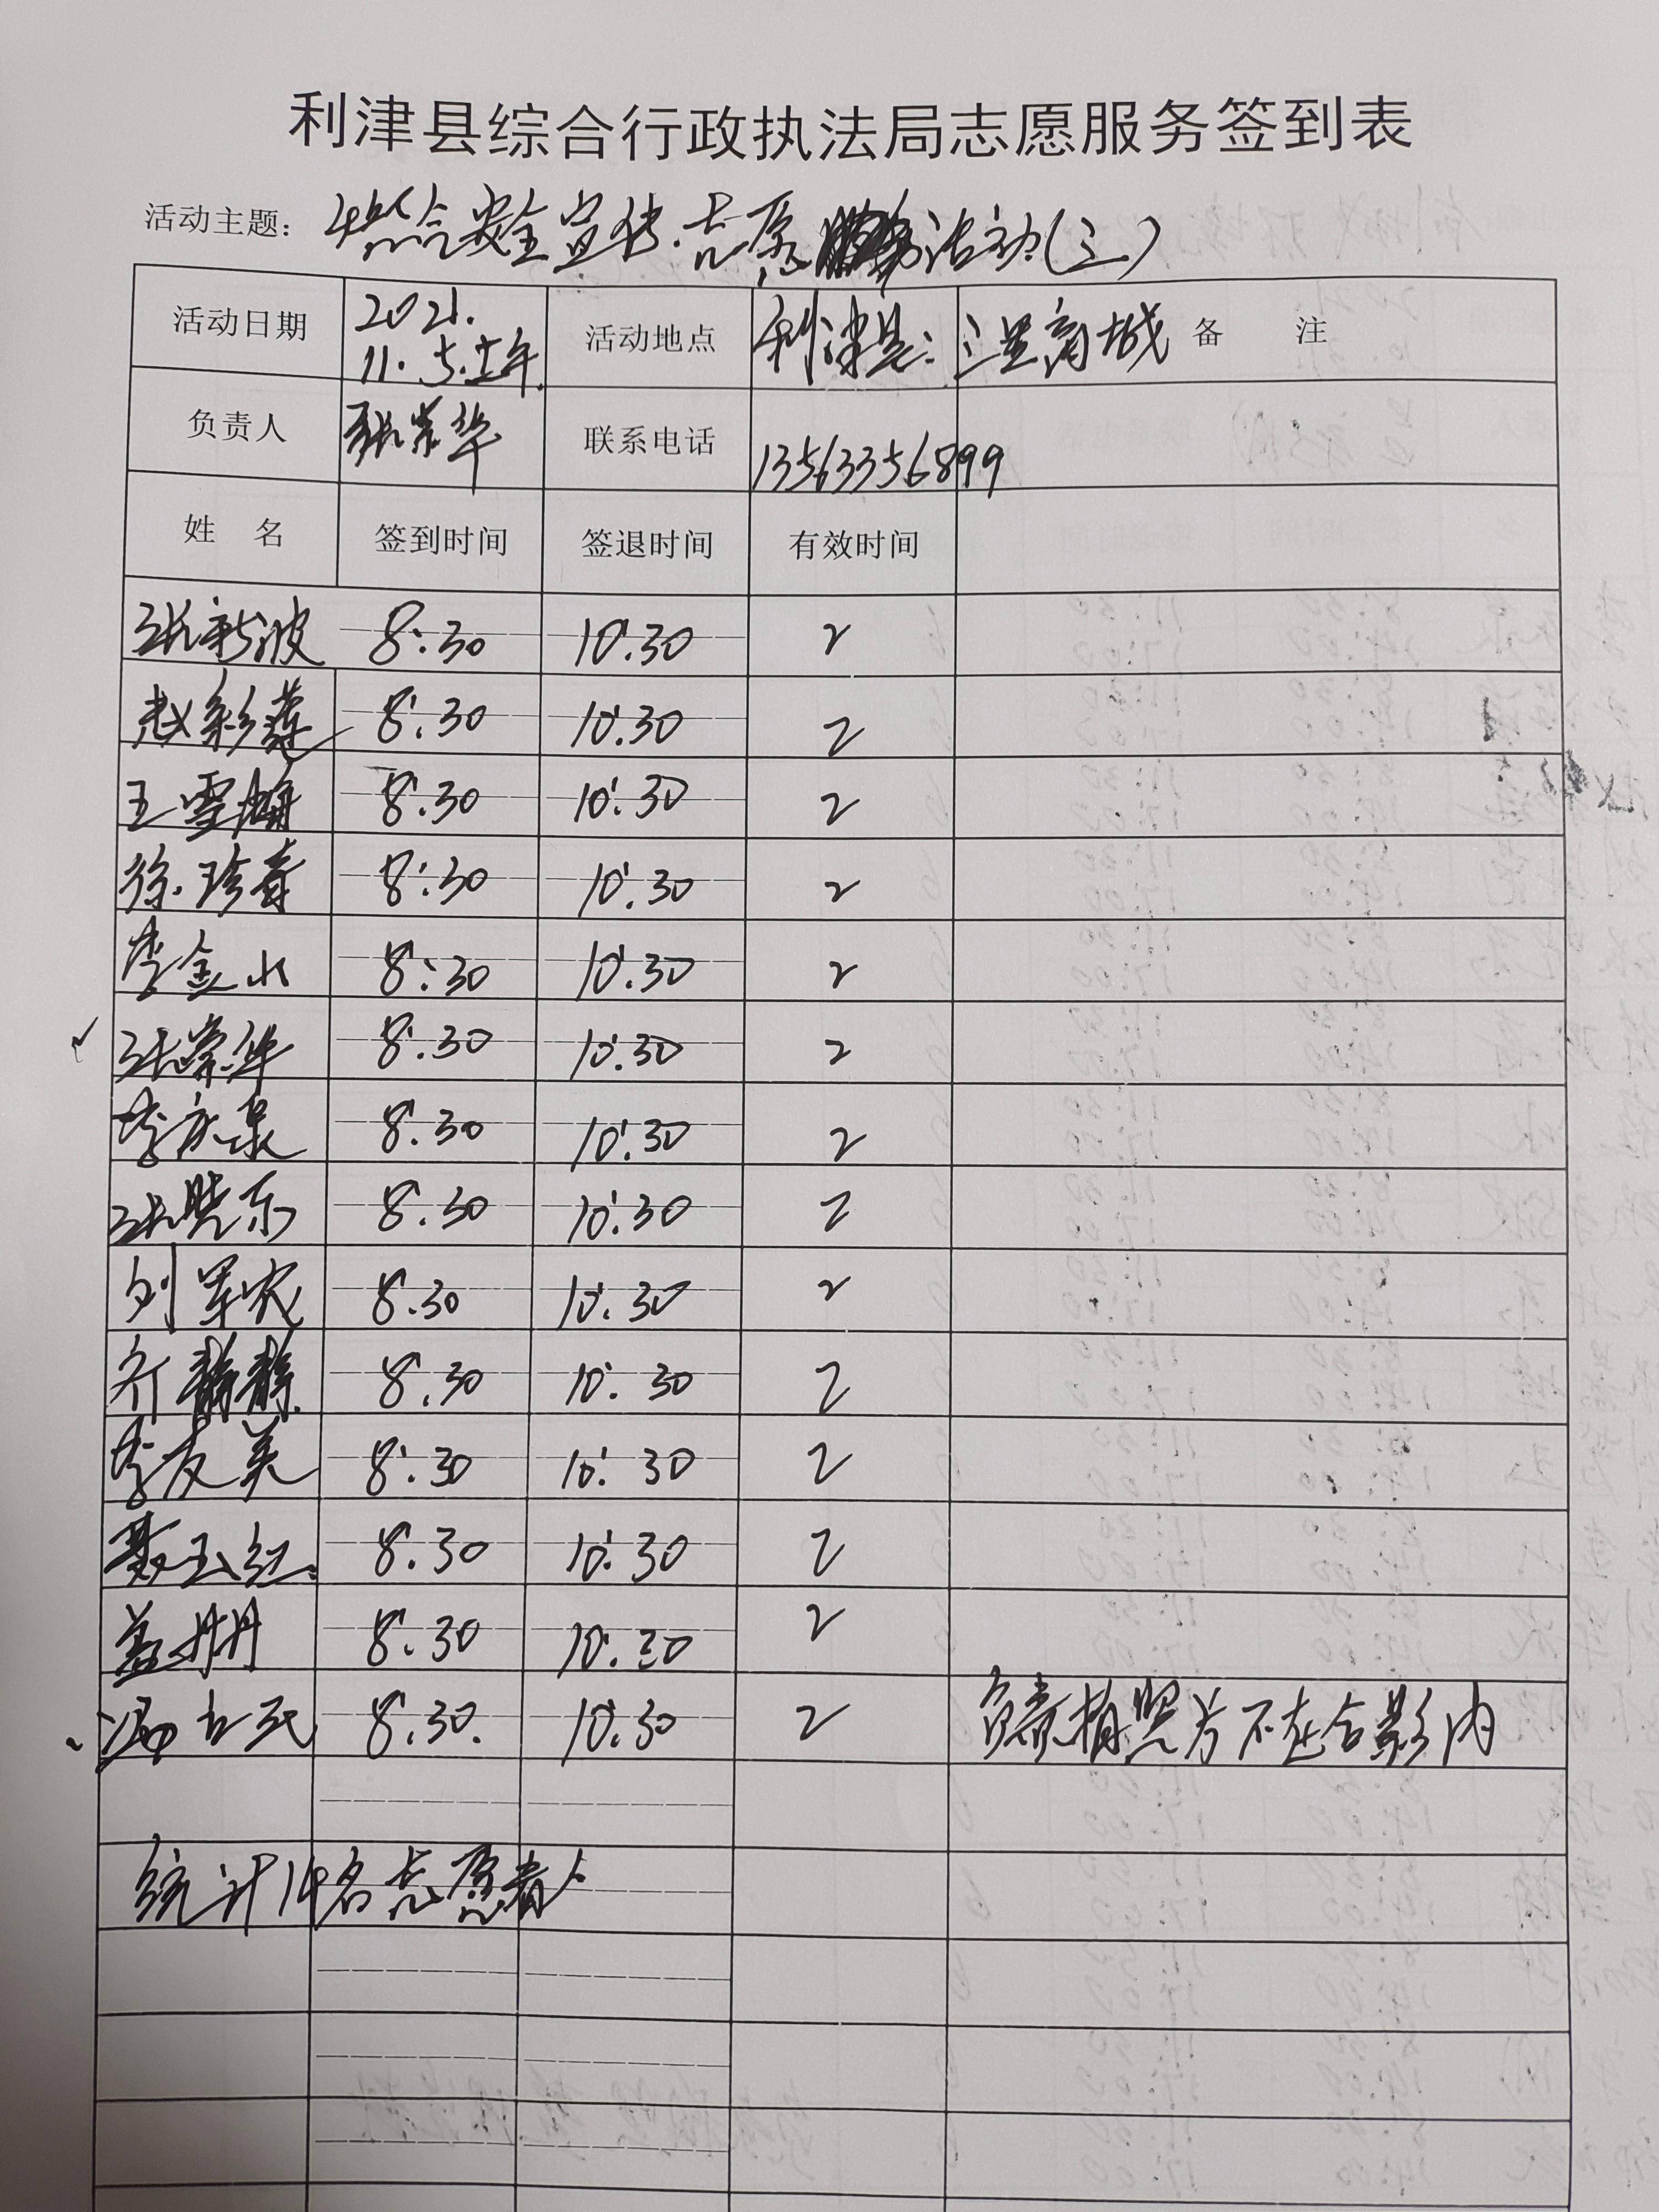 利津县综合行政执法局志愿服务签到表
活动主题：燃气安全宣传志愿服务活动(三)
活动日期 2021.11.5.上午. 活动地点 利津县：三里商城 备 注
负责人 张崇华 联系电话 13563356899
姓 名 签到时间 签退时间 有效时间
张新波 8:30 10:30 2
赵彩莲 8:30 10:30 2
王雪梅 8:30 10:30 2
徐珍奇 8:30 10:30 2
李金山 8:30 10:30 2
张崇华 8:30 10:30 2
李庆泉 8:30 10:30 2
张晓东 8:30 10:30 2
刘军 8:30 10:30 2
齐静静 8:30 10:30 2
李友美 8:30 10:30 2
聂玉红 8:30 10:30 2
盖丹丹 8:30 10:30 2
冯 8:30. 10:30 2 负责拍照片不在合影内
统计14名志愿者人